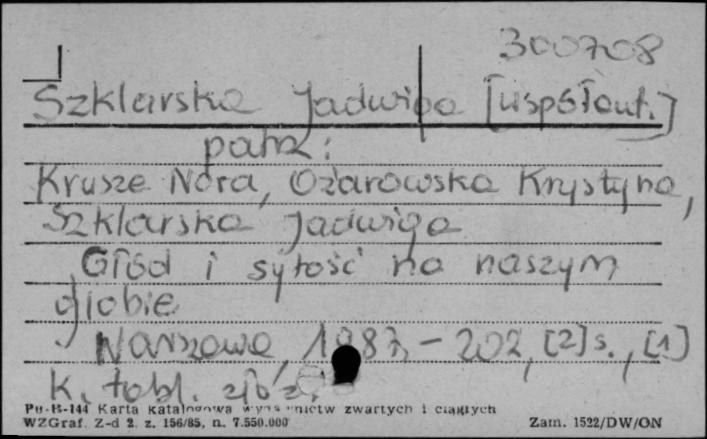 300708
Szklarska Jadwiga [współaut.]
patrz:
Krusze Nora, Ożarowska Krystyna,
Szklarska Jadwiga
Głód i sytość na naszym
globie
Warszawa, 1983, - 202, [2] s., [1]
k. tabl. złoż.
Pu-B-144 Karta katalogowa wydawnictw zwartych i ciągłych
WZGraf. Z-d 2. z. 156/85, n. 7.550.000 Zam. 1522/DW/ON